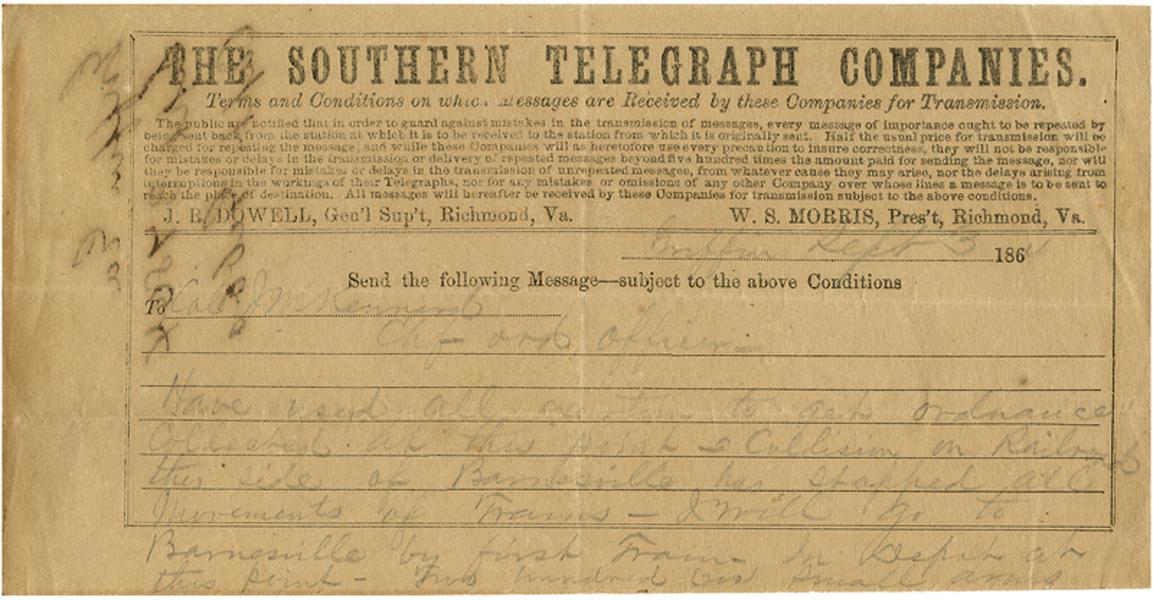 THE SOUTHERN TELEGRAPH COMPANIES.
Terms and Conditions on which Messages are Received by these Companies for Transmission.
The public are notified that in order to guard against mistakes in the transmission of messages, every message of importance ought to be repeated by
being sent back from the station at which it is to be received to the station from which it is originally sent. Half the usual price for transmission will be
charged for repeating the message, and while these Companies will as heretofore use every precaution to insure correctness, they will not be responsible
for mistakes or delays in the transmission or delivery of repeated messages beyond five hundred times the amount paid for sending the message, nor will
they be responsible for mistakes or delays in the transmission of unrepeated messages, from whatever cause they may arise, nor the delays arising from
interruptions in the workings of their Telegraphs, nor for any mistakes or omissions of any other Company over whose lines a message is to be sent to
reach the place of destination. All messages will hereafter be received by these Companies for transmission subject to the above conditions.
J. R. DOWELL, Gen'l Sup't, Richmond, Va. W. S. MORRIS, Pres't, Richmond, Va.
Griffin Sept 3 1864
Send the following Message—subject to the above Conditions
To
Chf ord officer
Have used all exertion to get ordnance
Collected at this point - Collision on Railroad
this side of Barnesville has stopped all
Movements of Trains - I will go to
Barnesville by first Train - In Depot at
this point - Two hundred small arms